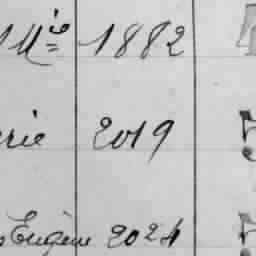 Mie 1882
rie 2019 5
Eugène 2024 5